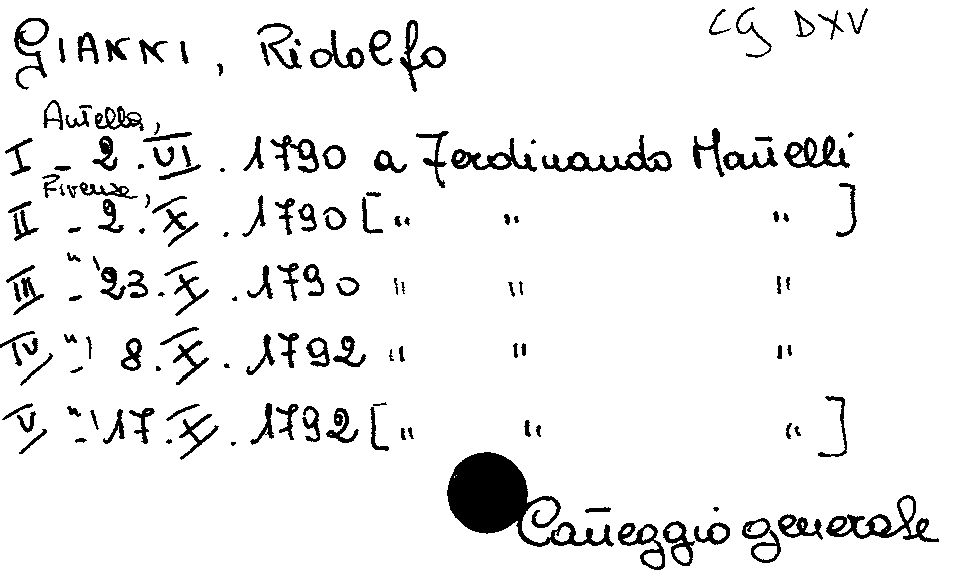 GIANNI, Ridolfo CG DXV
Antella,
I - 2.VI.1790 a Ferdinando Martelli
Firenze,
II - 2.X.1790 [" " "]
III - ", 23.X.1790 " " "
IV - ", 8.X.1792 " " "
V - ", 17.X.1792 [" " "]
Carteggio generale